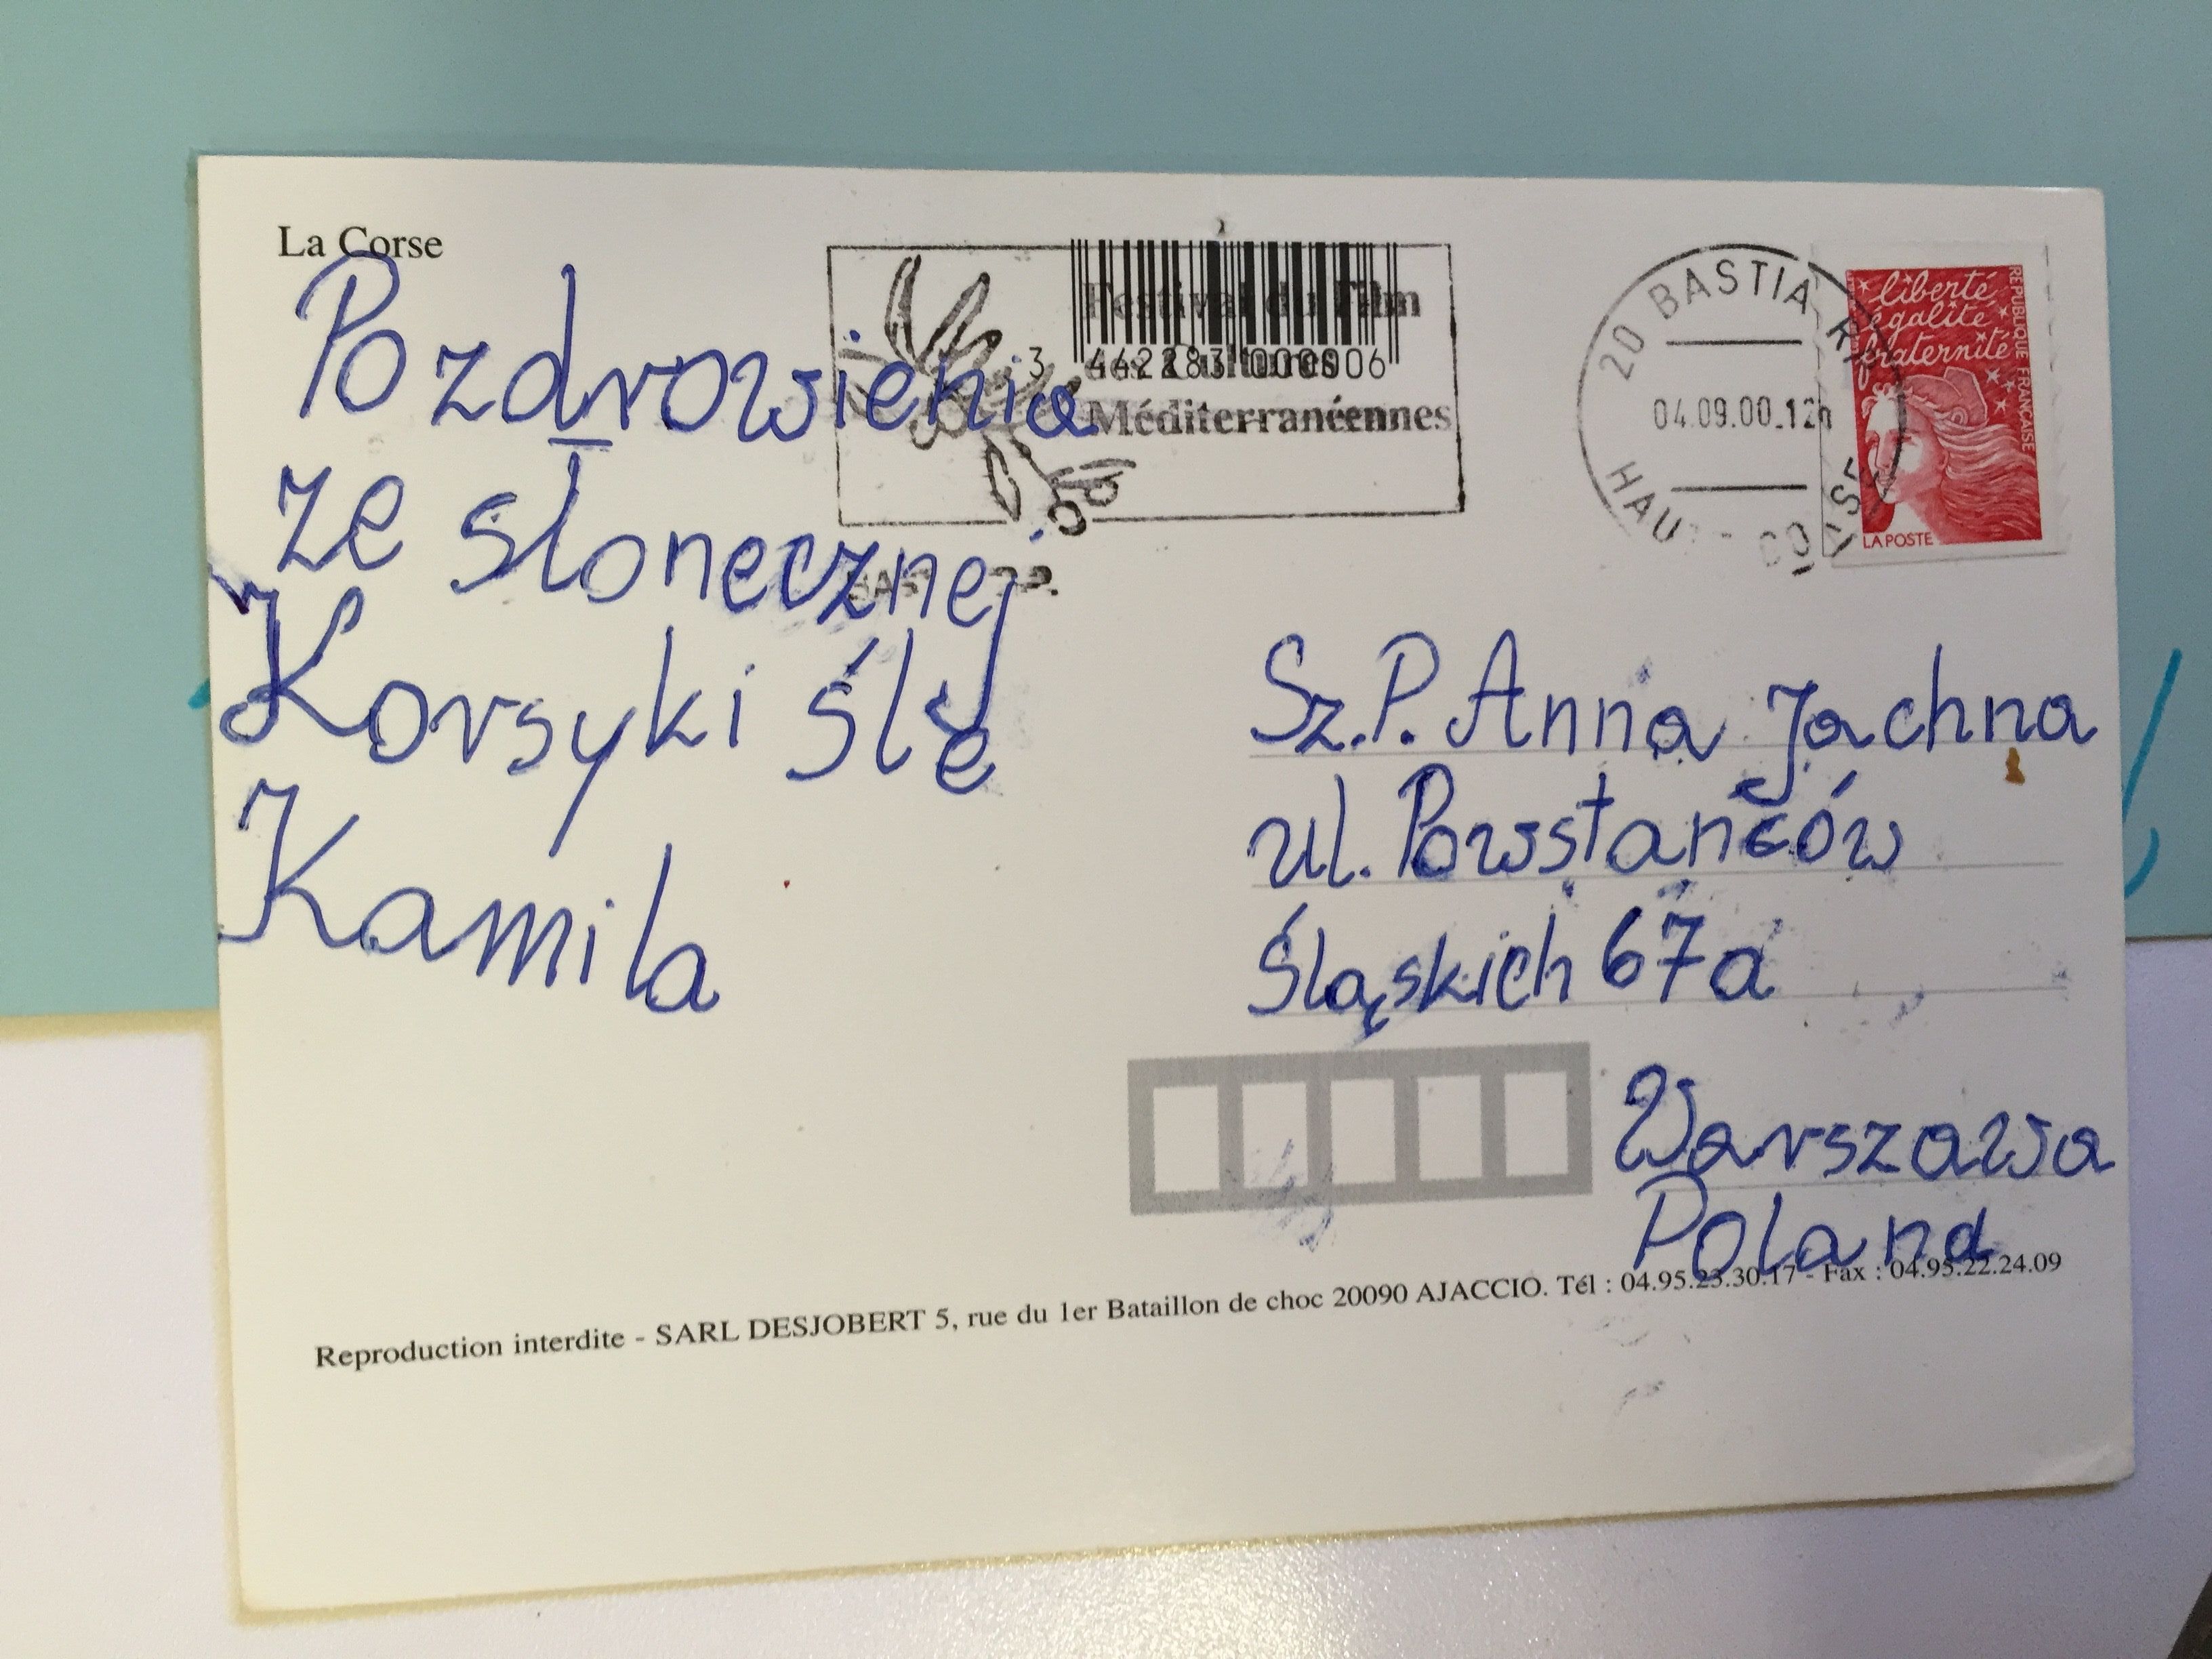 La Corse
Pozdrowienia
ze słonecznej
Korsyki ślę
Kamila
Festival du Film
3 442283 000006
des Cultures
Méditerranéennes
20 BASTIA R.P.
04.09.00.12h
HAUTE CORSE
liberté
égalité
fraternité
REPUBLIQUE FRANÇAISE
LA POSTE
Sz.P. Anna Jachna
ul. Powstańców
Śląskich 67a
Warszawa
Poland
Reproduction interdite - SARL DESJOBERT 5, rue du 1er Bataillon de choc 20090 AJACCIO. Tél : 04.95.23.30.17 - Fax : 04.95.22.24.09